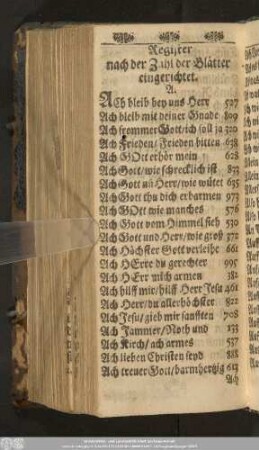 Register
nach der Zahl der Blätter
eingerichtet.
A.
ACh bleib bey uns Herr 527
Ach bleib mit deiner Gnade 809
Ach frommer Gott/ich soll ja 520
Ach Frieden/Frieden bitten 638
Ach GOtt erhör mein 628
Ach Gott/wie schrecklich ist 832
Ach Gott uñ Herr/wie wütet 635
Ach Gott thu dich erbarmen 973
Ach GOtt wie manches 576
Ach Gott vom Himmel sieh 530
Ach Gott und Herr/wie groß 372
Ach Höchster Gott verleihe 661
Ach HErre du gerechter 995
Ach HErr mich armen 382
Ach hilff mir/hilff Herr Jesu 461
Ach Herr/du allerhöchster 822
Ach Jesu/gieb mir sanfften 708
Ach Jammer/Noth und 133
Ach Kirch/ach armes 537
Ach lieben Christen seyd 888
Ach treuer Gott/barmhertzig 613
Ach